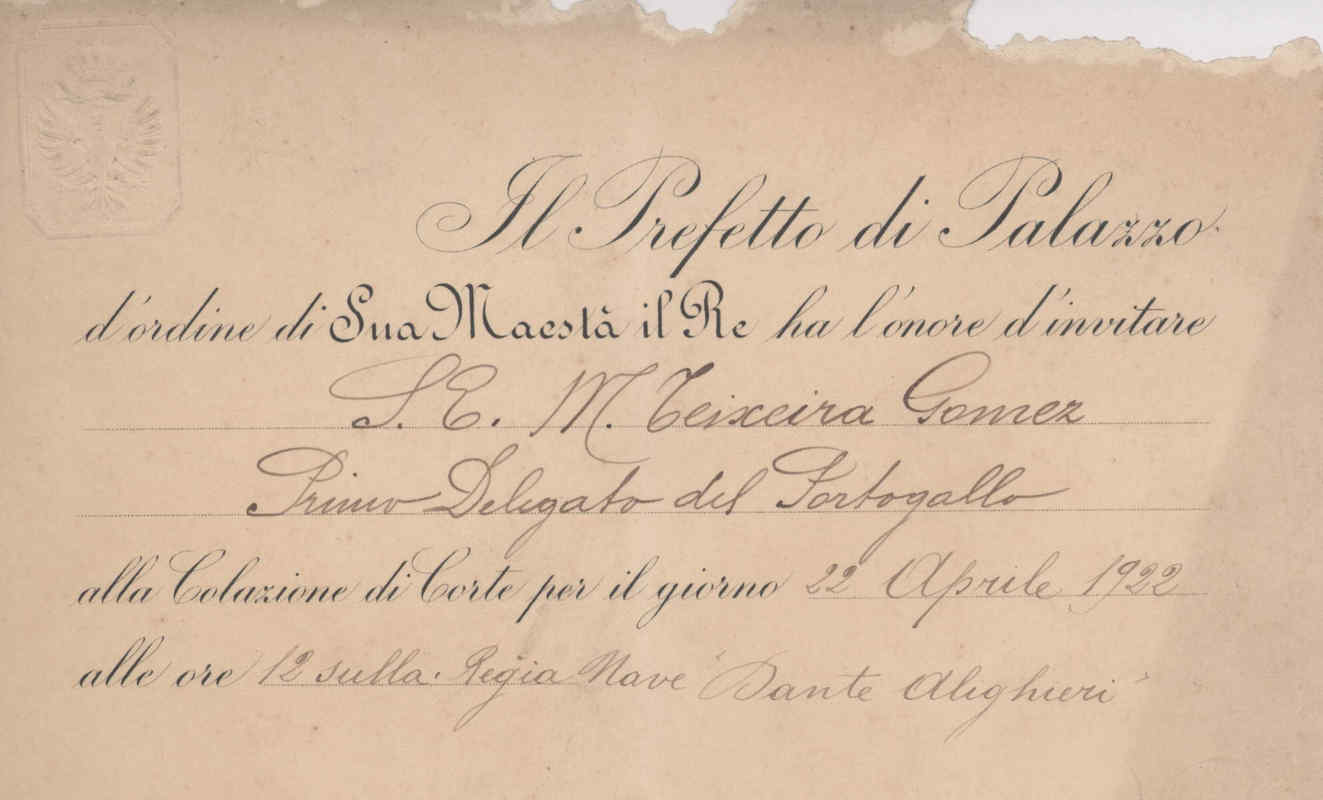 Il Prefetto di Palazzo
d'ordine di Sua Maestà il Re ha l'onore d'invitare
S. E. M. Teixeira Gomez
Primo Delegato del Portogallo
alla Colazione di Corte per il giorno 22 Aprile 1922
alle ore 12 sulla Regia Nave "Dante Alighieri"